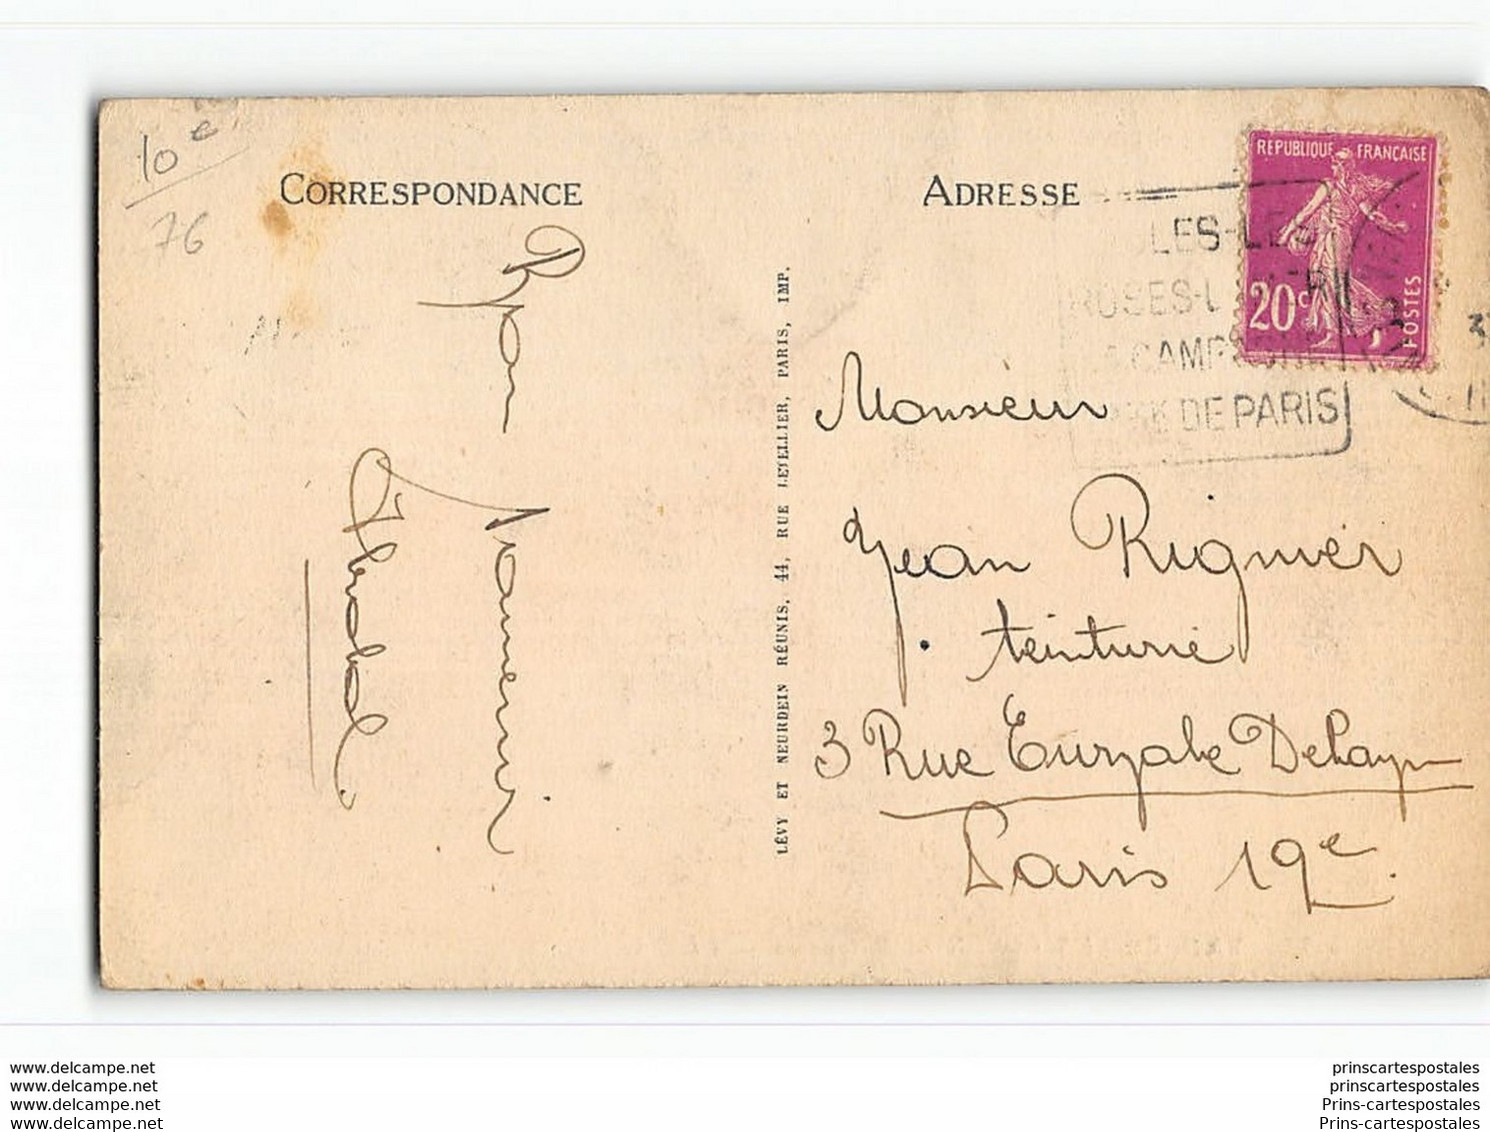 10e
76
CORRESPONDANCE
ADRESSE
REPUBLIQUE FRANÇAISE
20c
POSTES
DE PARIS
Bon
Souvenir
LÉVY ET NEURDEIN RÉUNIS, 44, RUE LETELLIER, PARIS, IMP.
Monsieur
Jean Rignier
teinturie
3 Rue Euryale Dehayn
Paris 19e
www.delcampe.net
www.delcampe.net
www.delcampe.net
www.delcampe.net
prinscartespostales
prinscartespostales
Prins-cartespostales
Prins-cartespostales